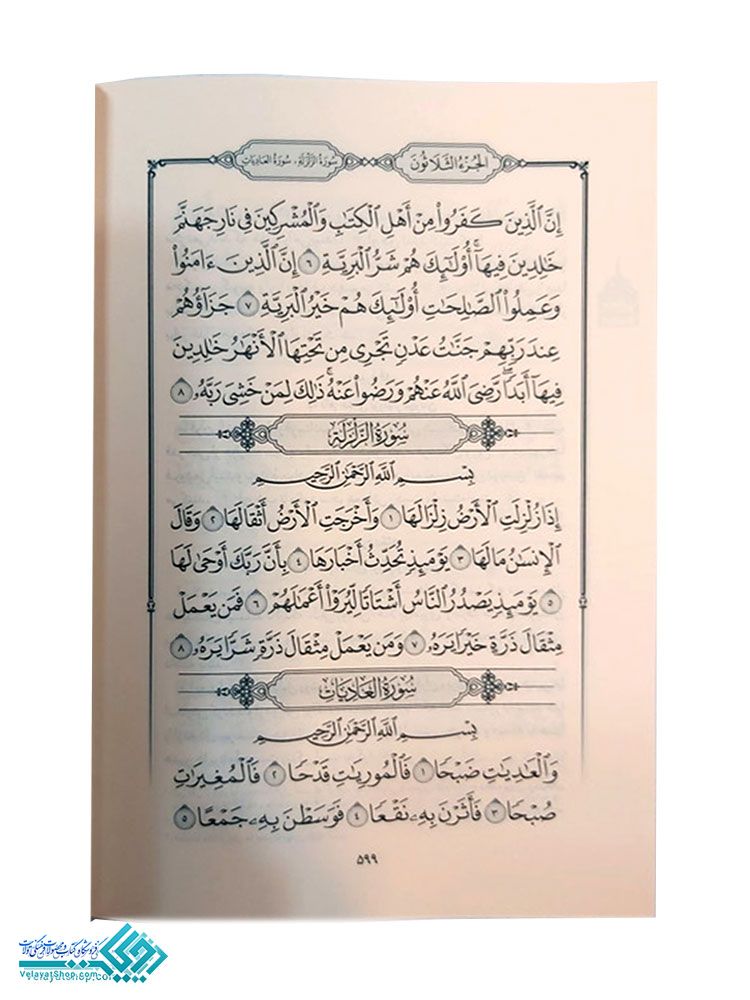 الجُزءُ الثَّلاثُونَ
سُورَةُ الزَّلزَلَةِ، سُورَةُ العَادِيَاتِ
إِنَّ ٱلَّذِينَ كَفَرُوا۟ مِنْ أَهْلِ ٱلْكِتَٰبِ وَٱلْمُشْرِكِينَ فِى نَارِ جَهَنَّمَ
خَٰلِدِينَ فِيهَآ ۚ أُو۟لَٰٓئِكَ هُمْ شَرُّ ٱلْبَرِيَّةِ ٦ إِنَّ ٱلَّذِينَ ءَامَنُوا۟
وَعَمِلُوا۟ ٱلصَّٰلِحَٰتِ أُو۟لَٰٓئِكَ هُمْ خَيْرُ ٱلْبَرِيَّةِ ٧ جَزَآؤُهُمْ
عِندَ رَبِّهِمْ جَنَّٰتُ عَدْنٍ تَجْرِى مِن تَحْتِهَا ٱلْأَنْهَٰرُ خَٰلِدِينَ
فِيهَآ أَبَدًا ۖ رَّضِىَ ٱللَّهُ عَنْهُمْ وَرَضُوا۟ عَنْهُ ۚ ذَٰلِكَ لِمَنْ خَشِىَ رَبَّهُۥ ٨
سُورَةُ الزَّلزَلَةِ
بِسْمِ ٱللَّهِ ٱلرَّحْمَٰنِ ٱلرَّحِيمِ
إِذَا زُلْزِلَتِ ٱلْأَرْضُ زِلْزَالَهَا ١ وَأَخْرَجَتِ ٱلْأَرْضُ أَثْقَالَهَا ٢ وَقَالَ
ٱلْإِنسَٰنُ مَا لَهَا ٣ يَوْمَئِذٍ تُحَدِّثُ أَخْبَارَهَا ٤ بِأَنَّ رَبَّكَ أَوْحَىٰ لَهَا
٥ يَوْمَئِذٍ يَصْدُرُ ٱلنَّاسُ أَشْتَاتًا لِّيُرَوْا۟ أَعْمَٰلَهُمْ ٦ فَمَن يَعْمَلْ
مِثْقَالَ ذَرَّةٍ خَيْرًا يَرَهُۥ ٧ وَمَن يَعْمَلْ مِثْقَالَ ذَرَّةٍ شَرًّا يَرَهُۥ ٨
سُورَةُ العَادِيَاتِ
بِسْمِ ٱللَّهِ ٱلرَّحْمَٰنِ ٱلرَّحِيمِ
وَٱلْعَٰدِيَٰتِ ضَبْحًا ١ فَٱلْمُورِيَٰتِ قَدْحًا ٢ فَٱلْمُغِيرَٰتِ
صُبْحًا ٣ فَأَثَرْنَ بِهِۦ نَقْعًا ٤ فَوَسَطْنَ بِهِۦ جَمْعًا ٥
۵۹۹
VelayatShop.com
velayatshop.com